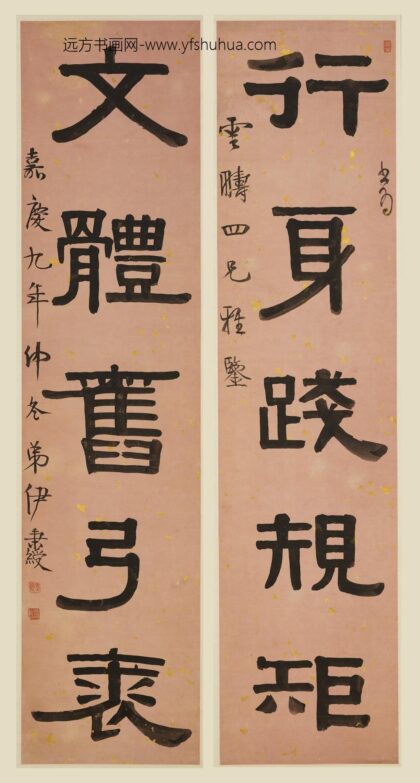 远方书画网-www.yfshuhua.com
書為
行身踐規矩
雲 四兄雅鑒
文體舊弓裘
嘉慶九年仲冬弟伊秉綬